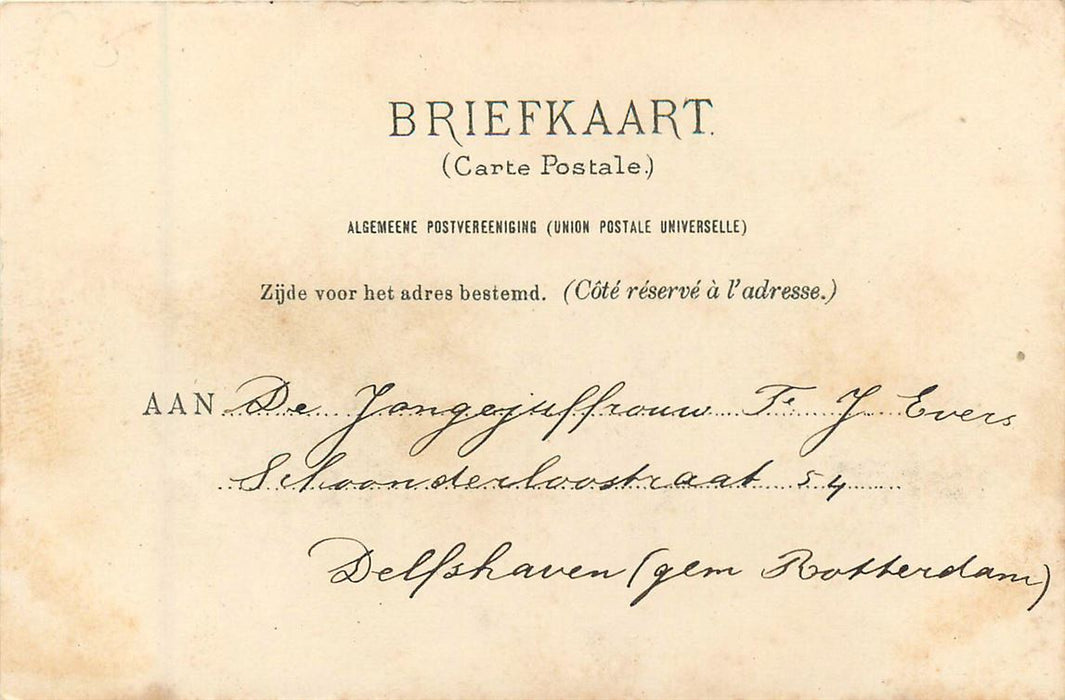 BRIEFKAART.
(Carte Postale.)
ALGEMEENE POSTVEREENIGING (UNION POSTALE UNIVERSELLE)
Zijde voor het adres bestemd. (Côté réservé à l'adresse.)
AAN De Jongejuffrouw F. J Evers
Schoonderloostraat 54
Delfshaven (gem Rotterdam)